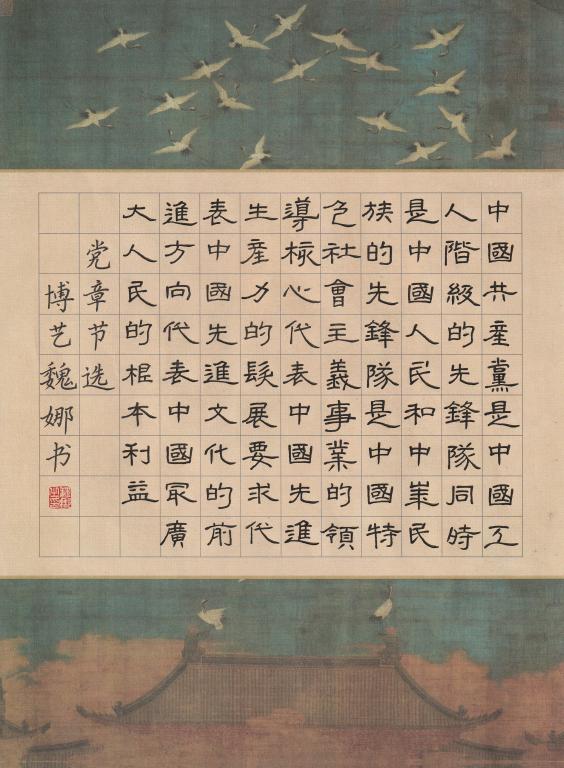 中國共產黨是中國工
人階級的先鋒隊同時
是中國人民和中華民
族的先鋒隊是中國特
色社會主義事業的領
導核心代表中國先進
生產力的發展要求代
表中國先進文化的前
進方向代表中國最廣
大人民的根本利益
党章节选
博艺魏娜书